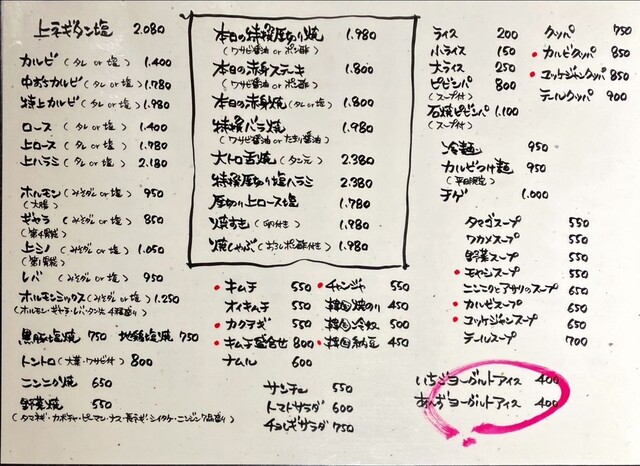 上ネギタン塩 2.080
カルビ（タレor塩）1.400
中おちカルビ（タレor塩）1.780
特上カルビ（タレor塩）1.980
ロース（タレor塩）1.400
上ロース（タレor塩）1.780
上ハラミ（タレor塩）2.180
ホルモン（みそダレor塩）950
（大腸）
ギャラ（みそダレor塩）850
（第4胃袋）
上ミノ（みそダレor塩）1.050
（第1胃袋）
レバ（みそダレor塩）950
ホルモンミックス（みそダレor塩）1.250
（ホルモン・ギャラ・レバ・タン先 4種盛り）
黒豚塩焼 750 地鶏塩焼 750
トントロ（大葉・ワサビ付）800
ニンニク焼 650
野菜焼 550
（タマネギ・カボチャ・ピーマン・ナス・長ネギ・シイタケ・ニンジン 7品盛り）
本日の特撰厚切り焼 1.980
（ワサビ醤油 or ポン酢）
本日の赤身ステーキ 1.800
（ワサビ醤油 or ポン酢）
本日の赤身焼（タレor塩）1.800
特撰バラ焼 1.980
（ワサビ醤油 or たまり醤油）
大トロ舌焼（タン元）2.380
特撰厚切り塩ハラミ 2.380
厚切り上ロース塩 1.780
焼すき（卵付き）1.780
焼しゃぶ（おろしポン酢付き）1.980
キムチ 550
オイキムチ 550
カクテギ 550
キムチ盛合せ 800
ナムル 600
チャンジャ 550
韓国焼のり 450
韓国冷奴 500
韓国納豆 450
サンチュ 550
トマトサラダ 600
チョレギサラダ 750
ライス 200
小ライス 150
大ライス 250
ビビンバ 800
（スープ付）
石焼ビビンバ 1.100
（スープ付）
クッパ 750
カルビクッパ 850
ユッケジャンクッパ 850
テールクッパ 900
冷麺 950
カルビつけ麺 950
（平日限定）
チゲ 1.000
タマゴスープ 550
ワカメスープ 550
野菜スープ 550
モヤシスープ 550
ニンニクとアサリのスープ 650
カルビスープ 650
ユッケジャンスープ 650
テールスープ 700
いちごヨーグルトアイス 400
あんずヨーグルトアイス 400